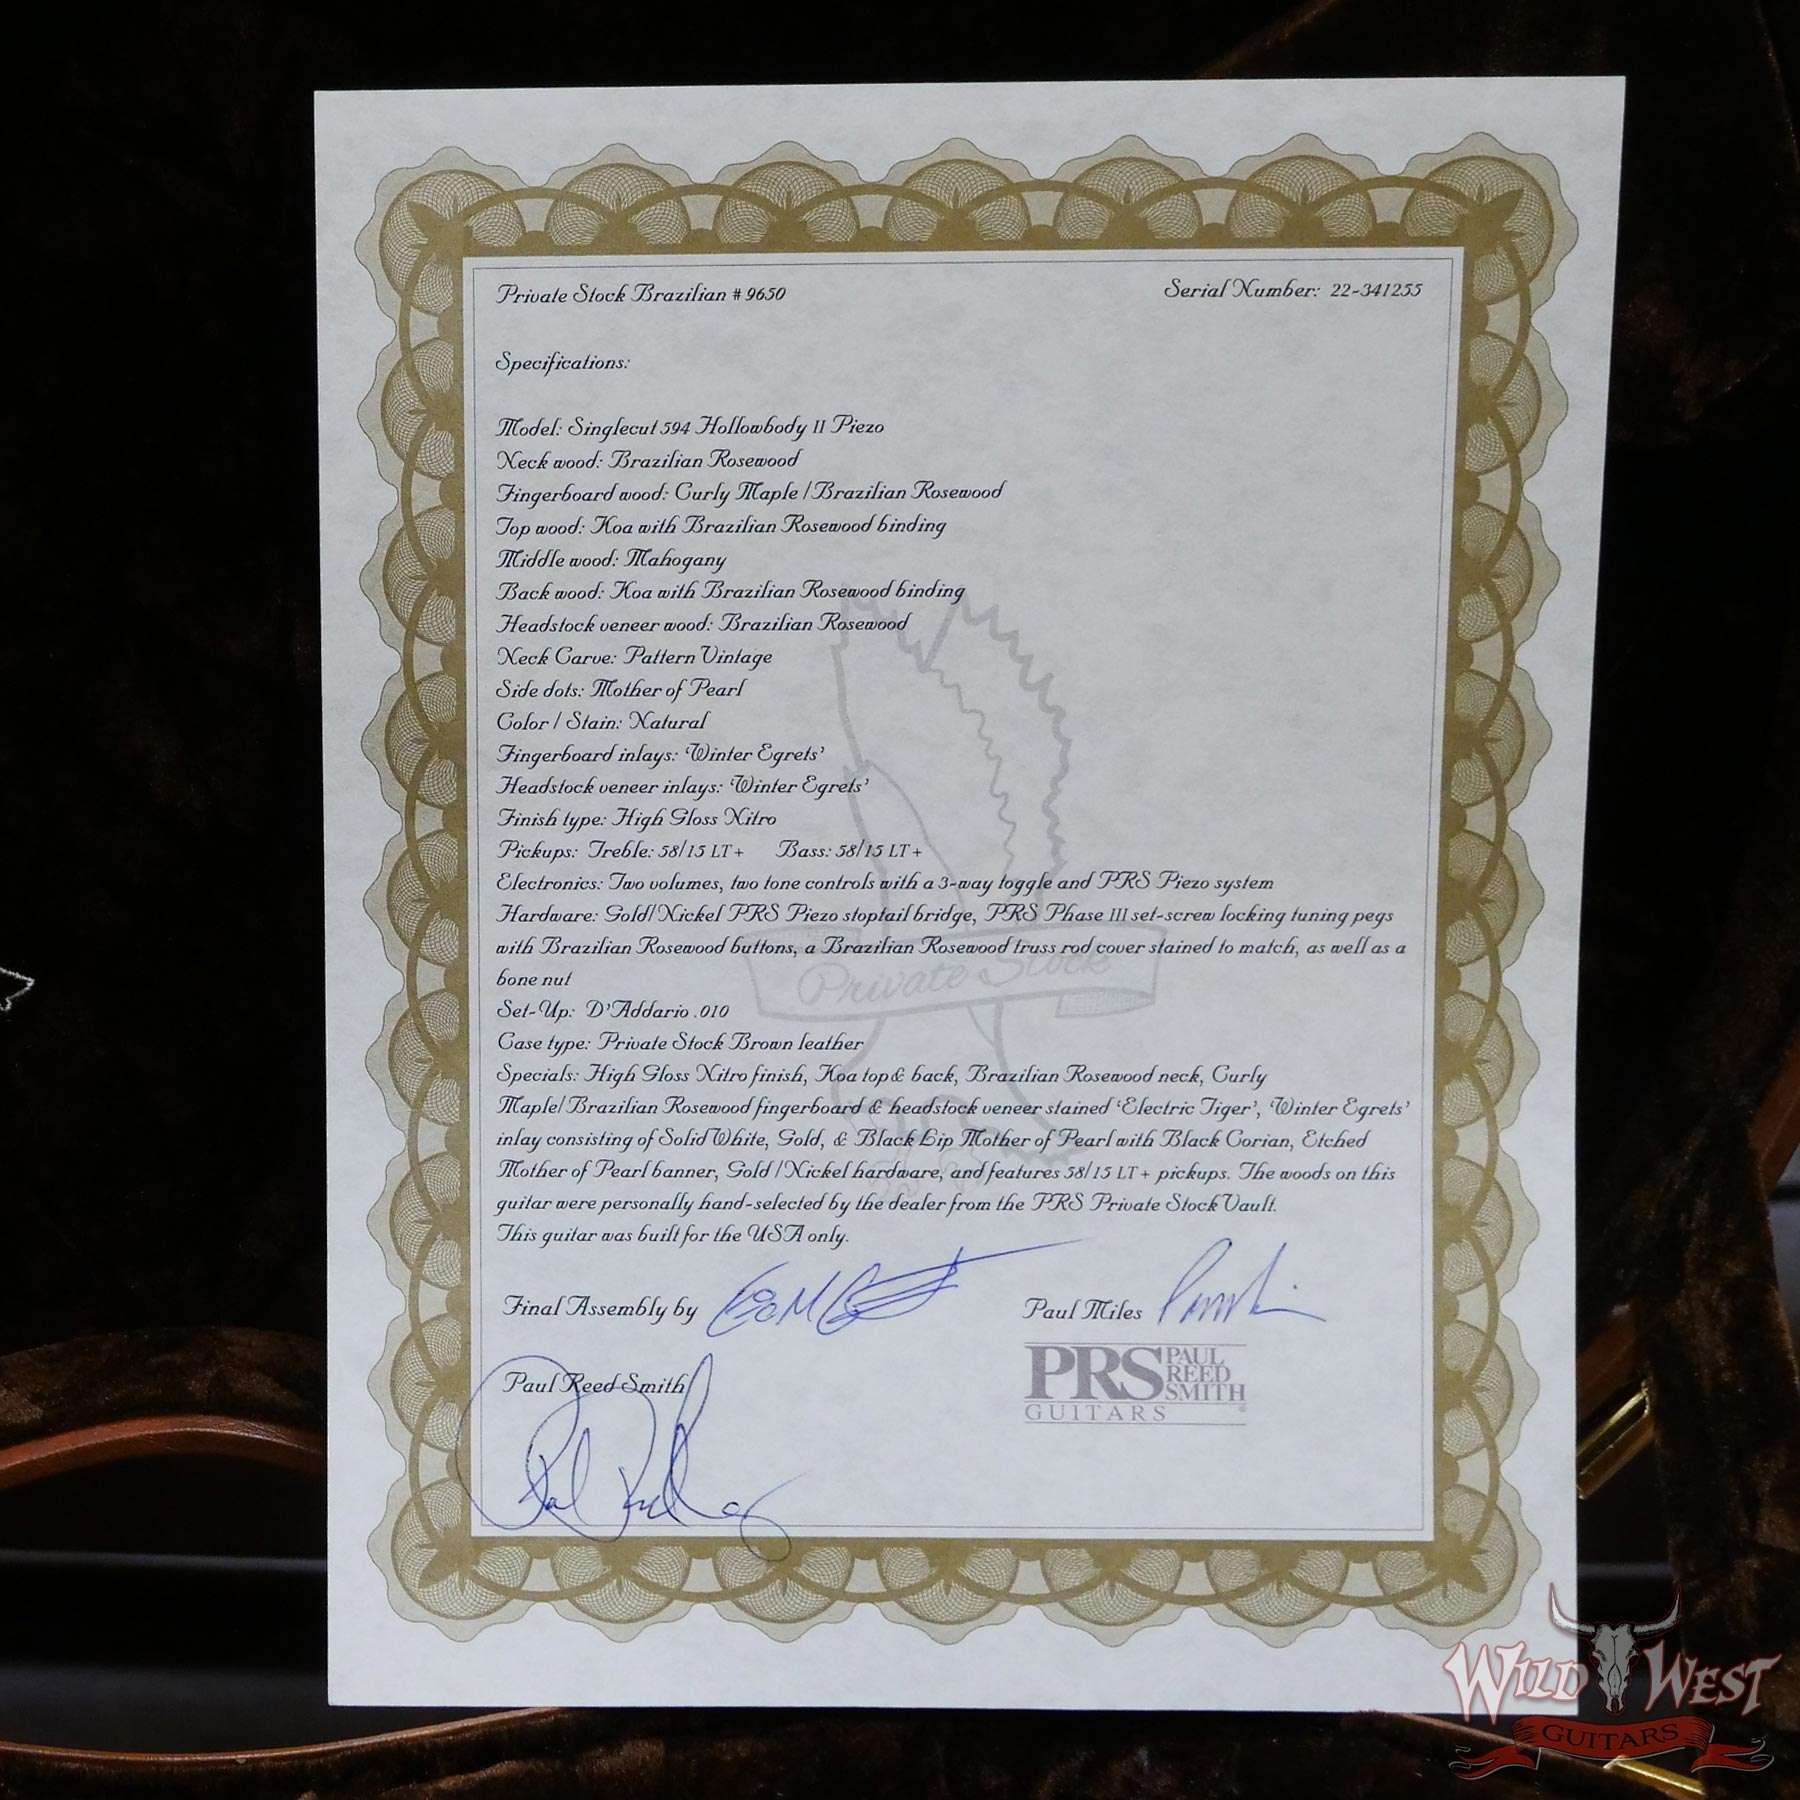 Private Stock Brazilian # 9650
Serial Number: 22-341255
Specifications:
Model: Singlecut 594 Hollowbody II Piezo
Neck wood: Brazilian Rosewood
Fingerboard wood: Curly Maple / Brazilian Rosewood
Top wood: Koa with Brazilian Rosewood binding
Middle wood: Mahogany
Back wood: Koa with Brazilian Rosewood binding
Headstock veneer wood: Brazilian Rosewood
Neck Carve: Pattern Vintage
Side dots: Mother of Pearl
Color / Stain: Natural
Fingerboard inlays: 'Winter Egrets'
Headstock veneer inlays: 'Winter Egrets'
Finish type: High Gloss Nitro
Pickups: Treble: 58/15 LT+ Bass: 58/15 LT+
Electronics: Two volumes, two tone controls with a 3-way toggle and PRS Piezo system
Hardware: Gold/Nickel PRS Piezo stoptail bridge, PRS Phase III set-screw locking tuning pegs
with Brazilian Rosewood buttons, a Brazilian Rosewood truss rod cover stained to match, as well as a
bone nut
Private Stock
Set-Up: D'Addario .010
Case type: Private Stock Brown leather
Specials: High Gloss Nitro finish, Koa top & back, Brazilian Rosewood neck, Curly
Maple/Brazilian Rosewood fingerboard & headstock veneer stained 'Electric Tiger', 'Winter Egrets'
inlay consisting of Solid White, Gold, & Black Lip Mother of Pearl with Black Corian, Etched
Mother of Pearl banner, Gold / Nickel hardware, and features 58/15 LT+ pickups. The woods on this
guitar were personally hand-selected by the dealer from the PRS Private Stock Vault.
This guitar was built for the USA only.
Final Assembly by
Paul Miles
Paul Reed Smith
PRS PAUL
REED
SMITH
GUITARS
WILD WEST
GUITARS